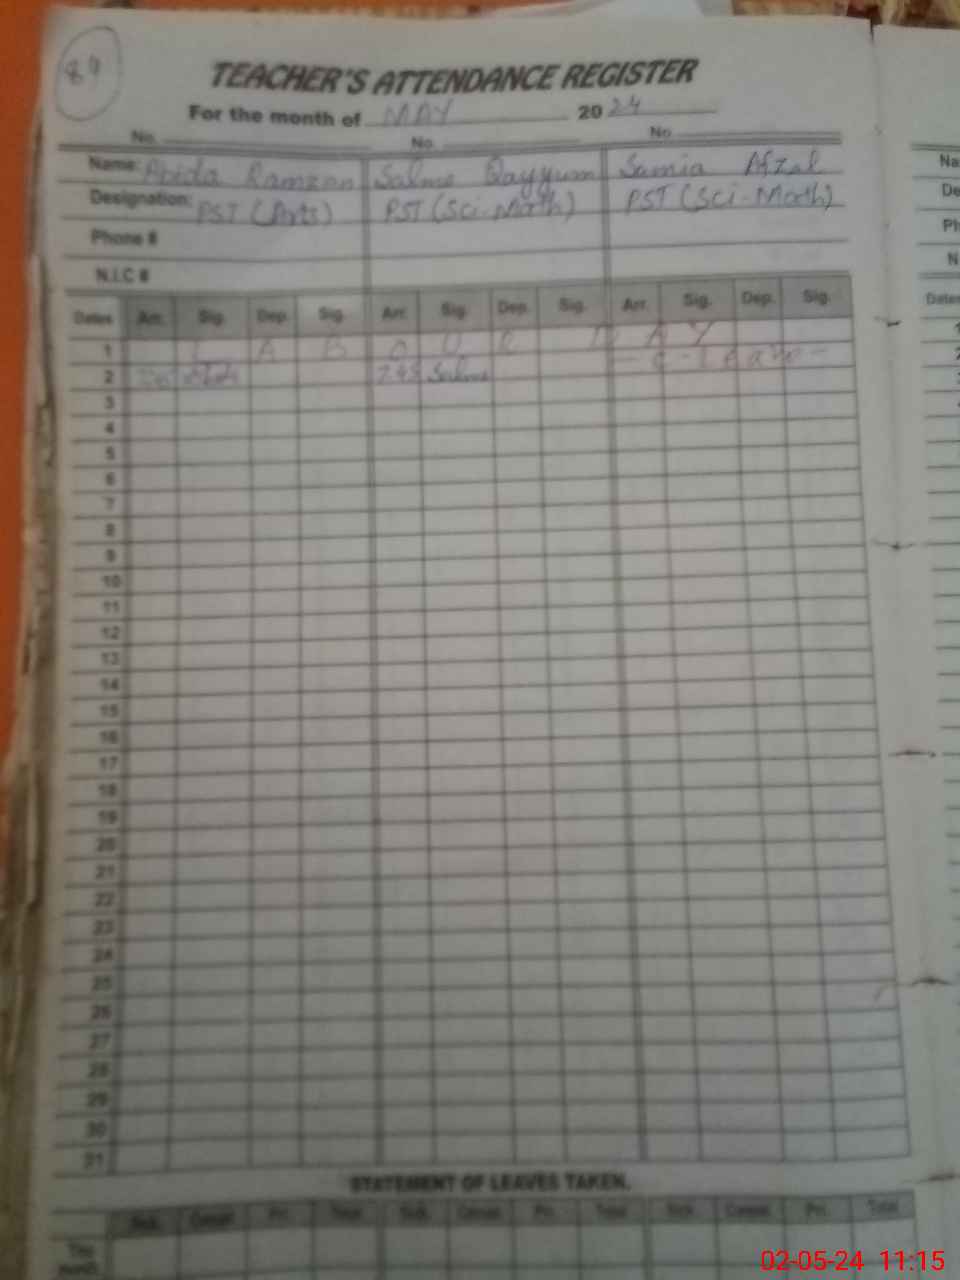 84
TEACHER'S ATTENDANCE REGISTER
For the month of MAY 2024
No. No. No.
Name: Abida Ramzan Salma Qayyum Samia Afzal
Designation: PST (Arts) PST (Sci-Math) PST (Sci-Math)
Phone #
N.I.C #
Dates Arr. Sig. Dep. Sig. Arr. Sig. Dep. Sig. Arr. Sig. Dep. Sig.
1 L A B O U R D A Y
2 7.45 Salma - C - Leave -
3
4
5
6
7
8
9
10
11
12
13
14
15
16
17
18
19
20
21
22
23
24
25
26
27
28
29
30
31
STATEMENT OF LEAVES TAKEN.
Sick. Casual. Pri. Total. Sick. Casual. Pri. Total. Sick. Casual. Pri. Total.
This
month.
Na
De
Ph
N.
Dates
02-05-24 11:15